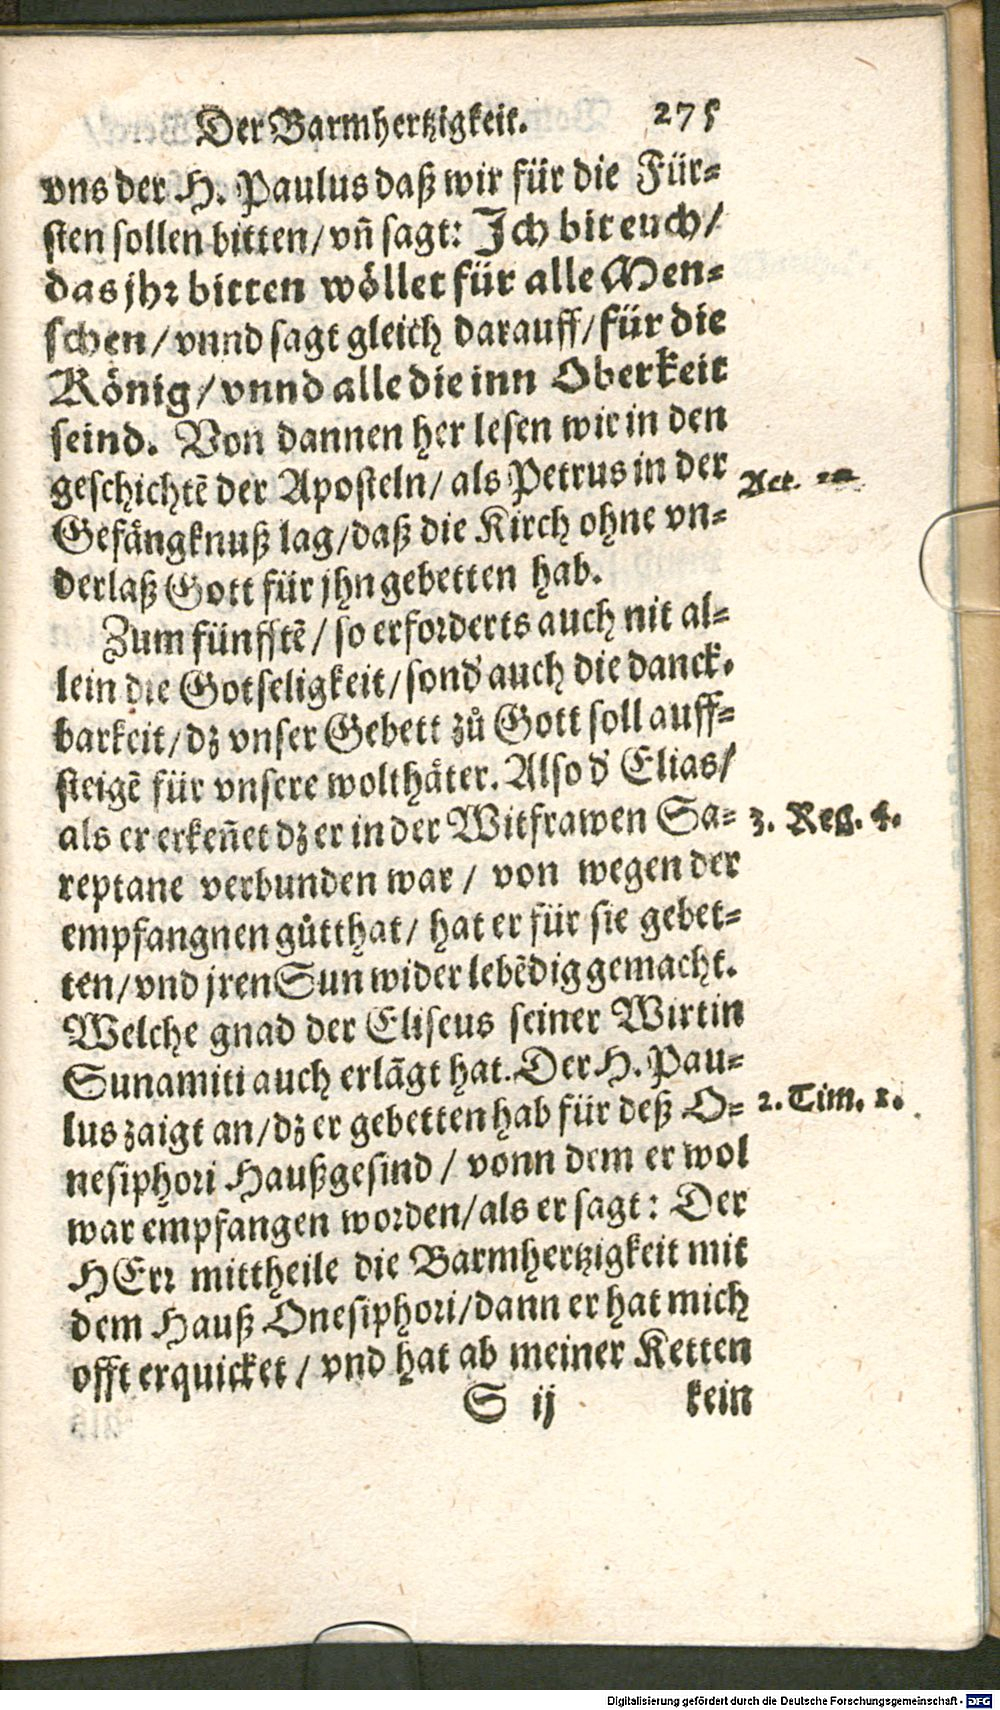 Der Barmhertzigkeit. 275
vns der H. Paulus daß wir für die Für-
sten sollen bitten/ vn̄ sagt: Ich bit euch/
das jhr bitten wöllet für alle Men-
schen/ vnnd sagt gleich darauff/ für die
König/ vnnd alle die inn Oberkeit
seind. Von dannen her lesen wir in den
geschichtē der Aposteln/ als Petrus in der
Act. 12
Gefängknuß lag/ daß die Kirch ohne vn-
derlaß Gott für jhn gebetten hab.
Zum fünfftē/ so erforderts auch nit al-
lein die Gotseligkeit/ sond' auch die danck-
barkeit/ dz vnser Gebett zů Gott soll auff-
steigē für vnsere wolthäter. Also d' Elias/
als er erken̄et dz er in der Witfrawen Sa-
3. Reg. 4.
reptane verbunden war/ von wegen der
empfangnen gůtthat/ hat er für sie gebet-
ten/ vnd jren Sun wider lebēdig gemacht.
Welche gnad der Eliseus seiner Wirtin
Sunamiti auch erlāgt hat. Der H. Pau-
lus zaigt an/ dz er gebetten hab für deß O-
2. Tim. 1.
nesiphori Haußgesind/ vonn dem er wol
war empfangen worden/ als er sagt: Der
HErr mittheile die Barmhertzigkeit mit
dem Hauß Onesiphori/ dann er hat mich
offt erquicket/ vnd hat ab meiner Ketten
S ij kein
Digitalisierung gefördert durch die Deutsche Forschungsgemeinschaft - DFG